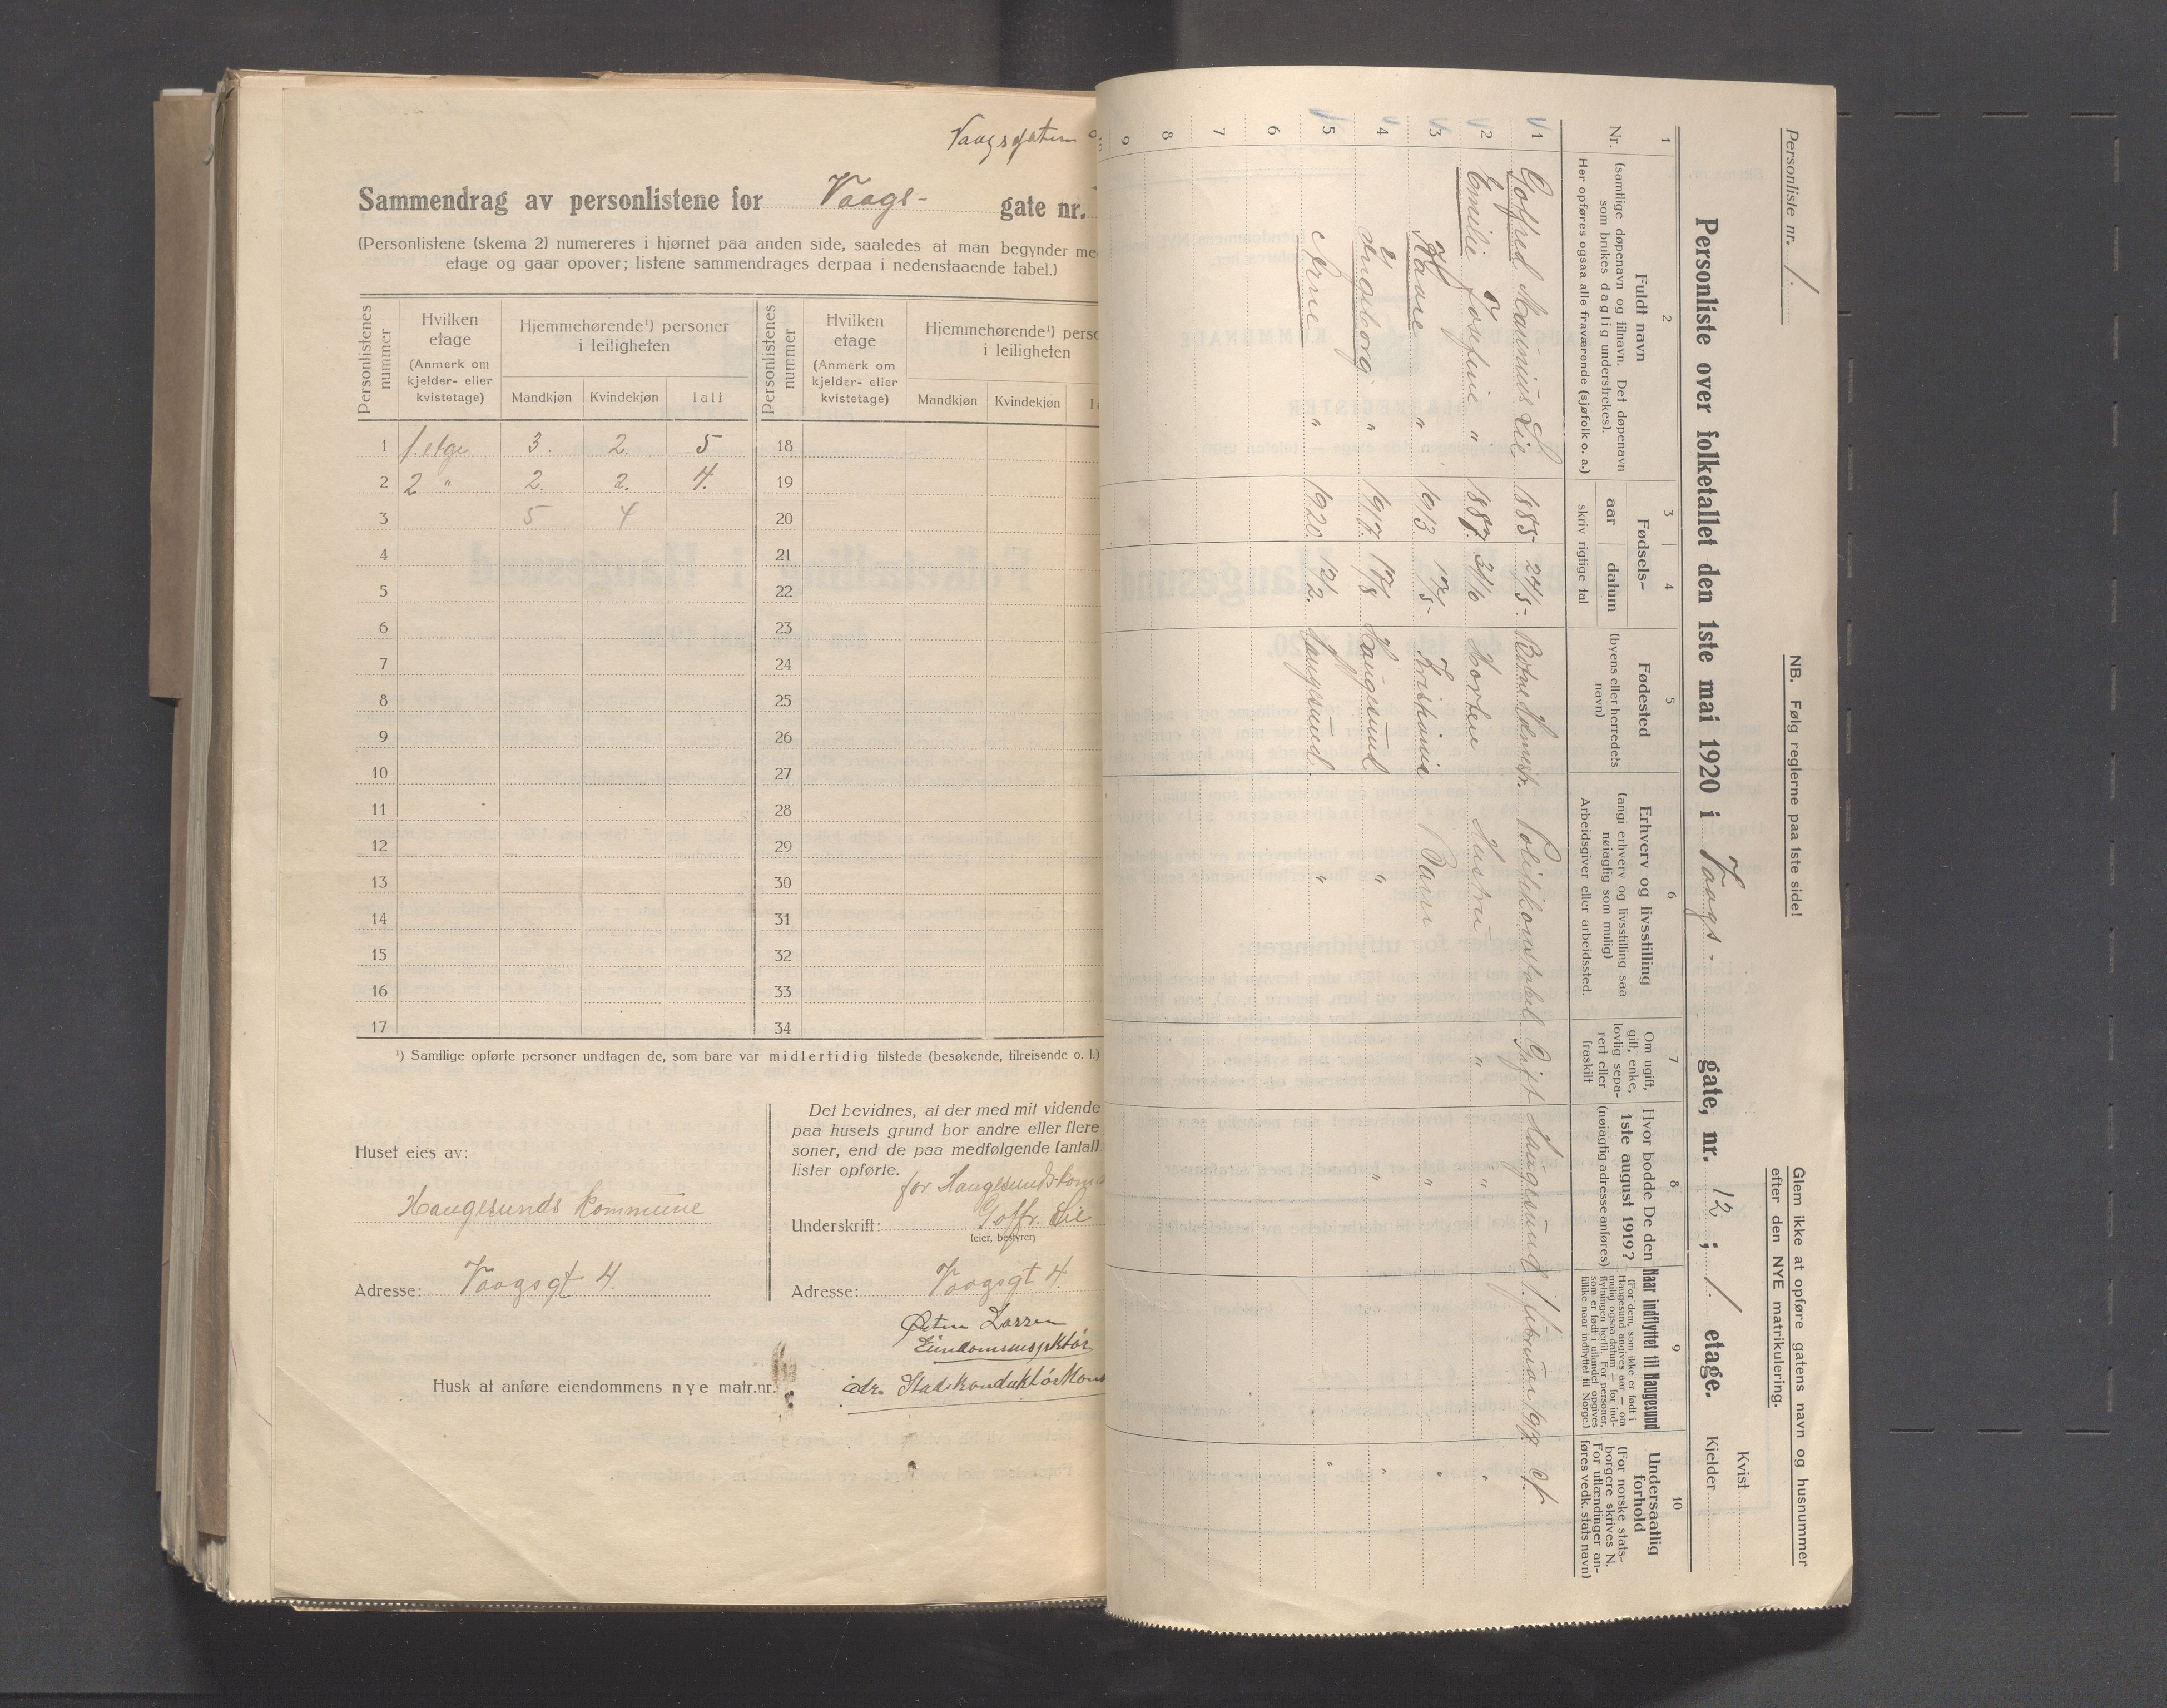 Vaagsgaten
Sammendrag av personlistene for Vaags- gate nr.
(Personlistene (skema 2) numereres i hjørnet paa anden side, saaledes at man begynder me
etage og gaar opover; listene sammendrages derpaa i nedenstaaende tabel.)
Personlistenes nummer
Hvilken etage (Anmerk om kjelder- eller kvistetage)
Hjemmehørende¹) personer i leiligheten
Mandkjøn Kvindekjøn Ialt
Personlistenes nummer
Hvilken etage (Anmerk om kjelder- eller kvistetage)
Hjemmehørende¹) perso
i leiligheten
Mandkjøn Kvindekjøn I
1 1. etge 3. 2. 5 18
2 2 " 2. 2. 4. 19
3 5 4 20
4 21
5 22
6 23
7 24
8 25
9 26
10 27
11 28
12 29
13 30
14 31
15 32
16 33
17 34
¹) Samtlige opførte personer undtagen de, som bare var midlertidig tilstede (besøkende, tilreisende o. l.)
Huset eies av:
Haugesunds kommune
Adresse: Vaagsgt 4.
Husk at anføre eiendommens nye matr.nr.
Det bevidnes, at der med mit vidende
paa husets grund bor andre eller flere
soner, end de paa medfølgende (antal)
lister opførte.
for Haugesunds kom
Underskrift: Golfr. Lie
(eier, bestyrer)
Adresse: Vaagsgt 4.
Larsen
adr. Stadskonduktørkon
Personliste nr. 1.
NB. Følg reglerne paa 1ste side!
Glem ikke at opføre gatens navn og husnummer
efter den NYE matrikulering.
Personliste over folketallet den 1ste mai 1920 i Vaags- gate, nr. 12 ; 1. etage.
Kvist
Kjelder
1 2 3 4 5 6 7 8 9 10
Nr.
Fuldt navn
(samtlige døpenavn og tilnavn. Det døpenavn
som brukes daglig understrekes).
Her opføres ogsaa alle fraværende (sjøfolk o. a.)
Fødsels-
aar datum
skriv rigtige tal
Fødested
(byens eller herredets
navn)
Erhverv og livsstilling
(angi erhverv og livsstilling saa
nøiagtig som mulig)
Arbeidsgiver eller arbeidssted.
Om ugift,
gift, enke,
lovlig sepa-
rert eller
fraskilt
Hvor bodde De den
1ste august 1919?
(nøiagtig adresse anføres)
Naar indflyttet til Haugesund
(For dem, som ikke er født i
Haugesund angives aar — om
mulig ogsaa datum — for ind-
flytningen hertil. For personer,
som er født i utlandet opgives
tillike naar indflyttet til Norge.)
Undersaatlig
forhold
(For norske stats-
borgere skrives N.
For utlændinger an-
føres vedk. stats navn)
1 Golfred Lie 24/5- Politikonstabel Gift Haugesund 1. februar 1917.
2 Emilie Josefine " 1887. Horten Hustru " " "
3 Kaare " 1913. 17/5- Kristiania Barn " "
4 Ingeborg " 1917. 17/8 Haugesund " " "
5 Arne " 1920. 13/2. Haugesund. " "
6
7
8
9